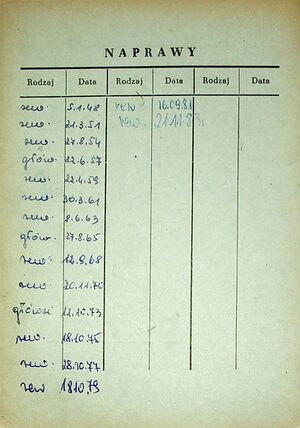 NAPRAWY
Rodzaj Data Rodzaj Data Rodzaj Data
rew. 5.1.48 rew 16.09.81
rew. 21.3.51 rew. 21.11.83r
rew. 27.8.54
głów. 22.6.57
rew 22.4.59
rew. 30.3.61
rew. 8.6.63
głów. 27.8.65
rew. 12.9.68
rew. 20.11.70
10.73
rew. 18.10.75
rew. 28.10.77
rew 18.10.79